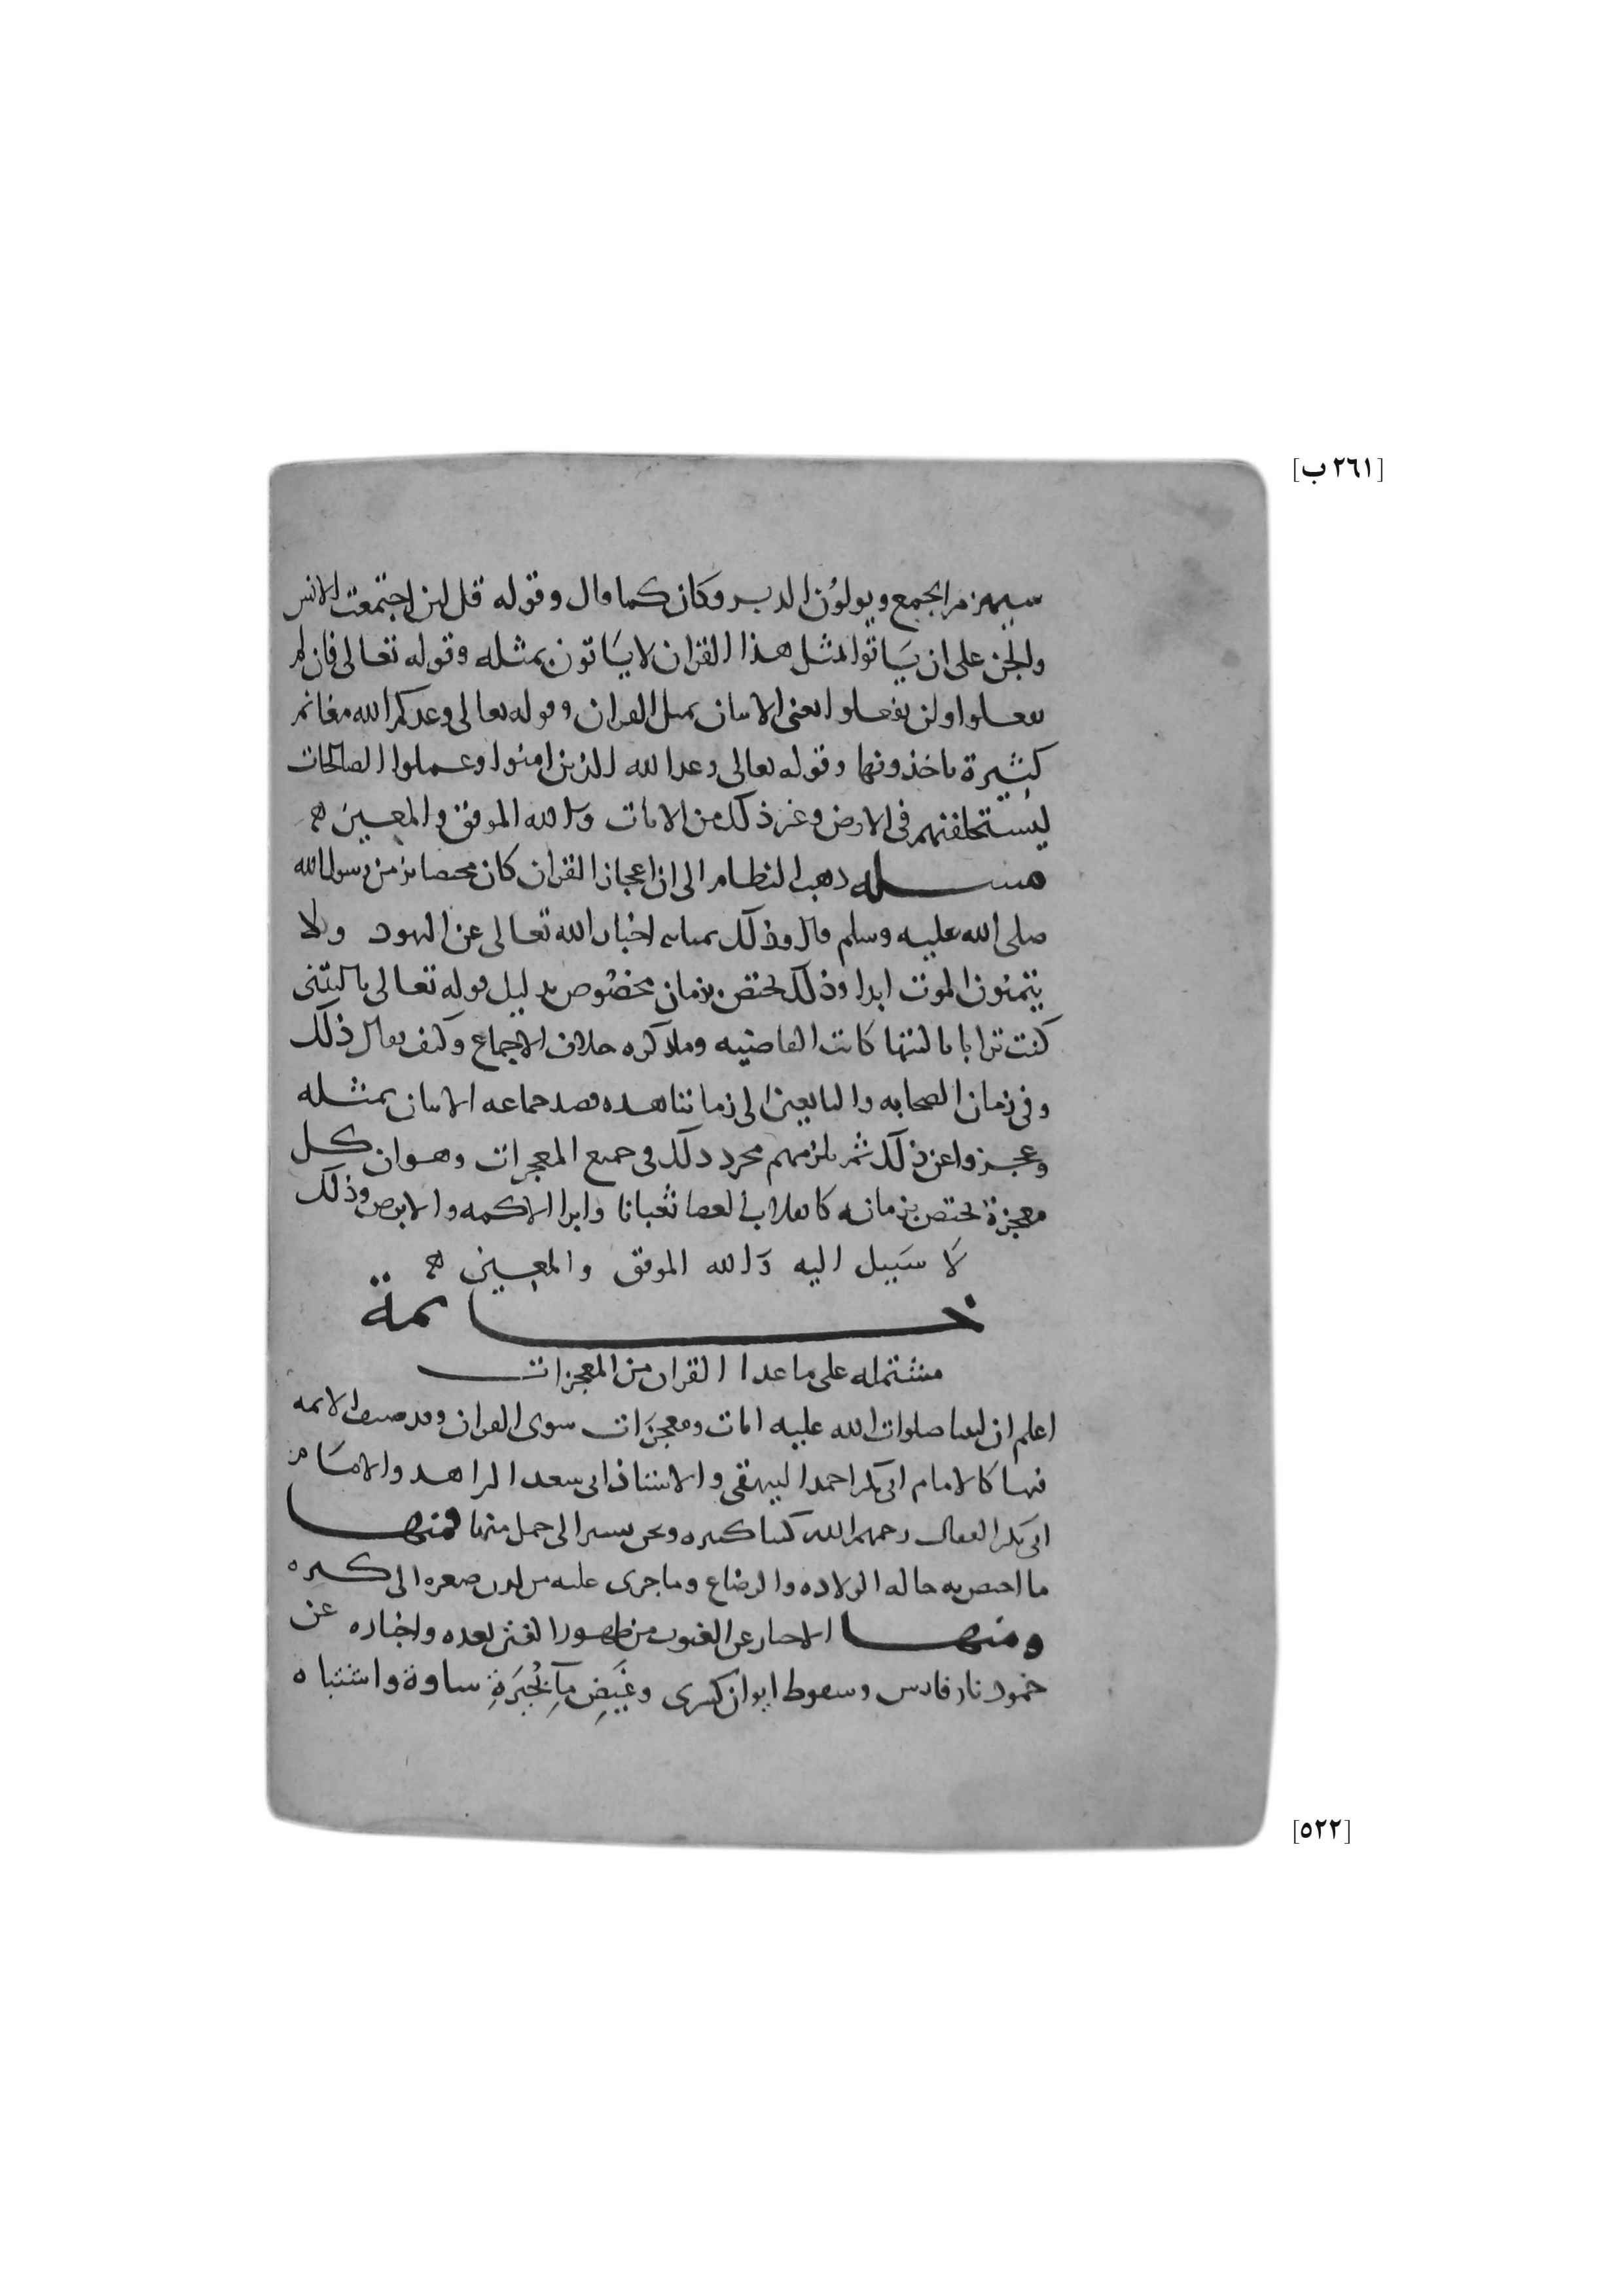 [٢٦١ ب]
سيهزم الجمع ويولون الدبر وكان كما قال وقوله قل لئن اجتمعت الانس
والجن على ان ياتوا بمثل هذا القران لا ياتون بمثله وقوله تعالى فان لم
تفعلوا ولن تفعلوا يعني الاتيان بمثل القران وقوله تعالى وعدكم الله مغانم
كثيرة تاخذونها وقوله تعالى وعد الله الذين امنوا وعملوا الصالحات
ليستخلفنهم في الارض وغير ذلك من الايات والله الموفق والمعين
مسئله ذهب النظام الى ان اعجاز القران كان مختصا بزمن رسول الله
صلى الله عليه وسلم قال وذلك بمثابه اخبار الله تعالى عن اليهود ولا
يتمنون الموت ابدا وذلك يختص بزمان مخصوص بدليل قوله تعالى يا ليتني
كنت ترابا يا ليتها كانت القاضيه وما ذكره خلاف الاجماع وكيف يقال ذلك
وفي زمان الصحابه والتابعين الى زماننا هذه قصد جماعه الاتيان بمثله
وعجزوا عن ذلك ثم يلزمهم مجرد ذلك في جميع المعجزات وهو ان كل
معجزة تختص بزمانه كانقلاب العصا ثعبانا وابرا الاكمه والابرص وذلك
لا سبيل اليه والله الموفق والمعين
خاتمة
مشتمله على ما عدا القران من المعجزات
اعلم ان لنبينا صلوات الله عليه ايات ومعجزات سوى القران وقد صنف الائمه
فيها كالامام ابي بكر احمد البيهقي والاستاذ ابي سعد الزاهد والامام
ابي بكر القفال رحمهم الله كتبا كثيره ونحن نشير الى جمل منها فمنها
ما اختص به حاله الولاده والرضاع وما جرى عليه من لدن صغره الى كبره
ومنها الاخبار عن الغيوب من ظهور الفتن بعده واخباره عن
خمود نار فارس وسقوط ايوان كسرى وغيض مآء بحيرة ساوة واشتباه
[٥٢٢]